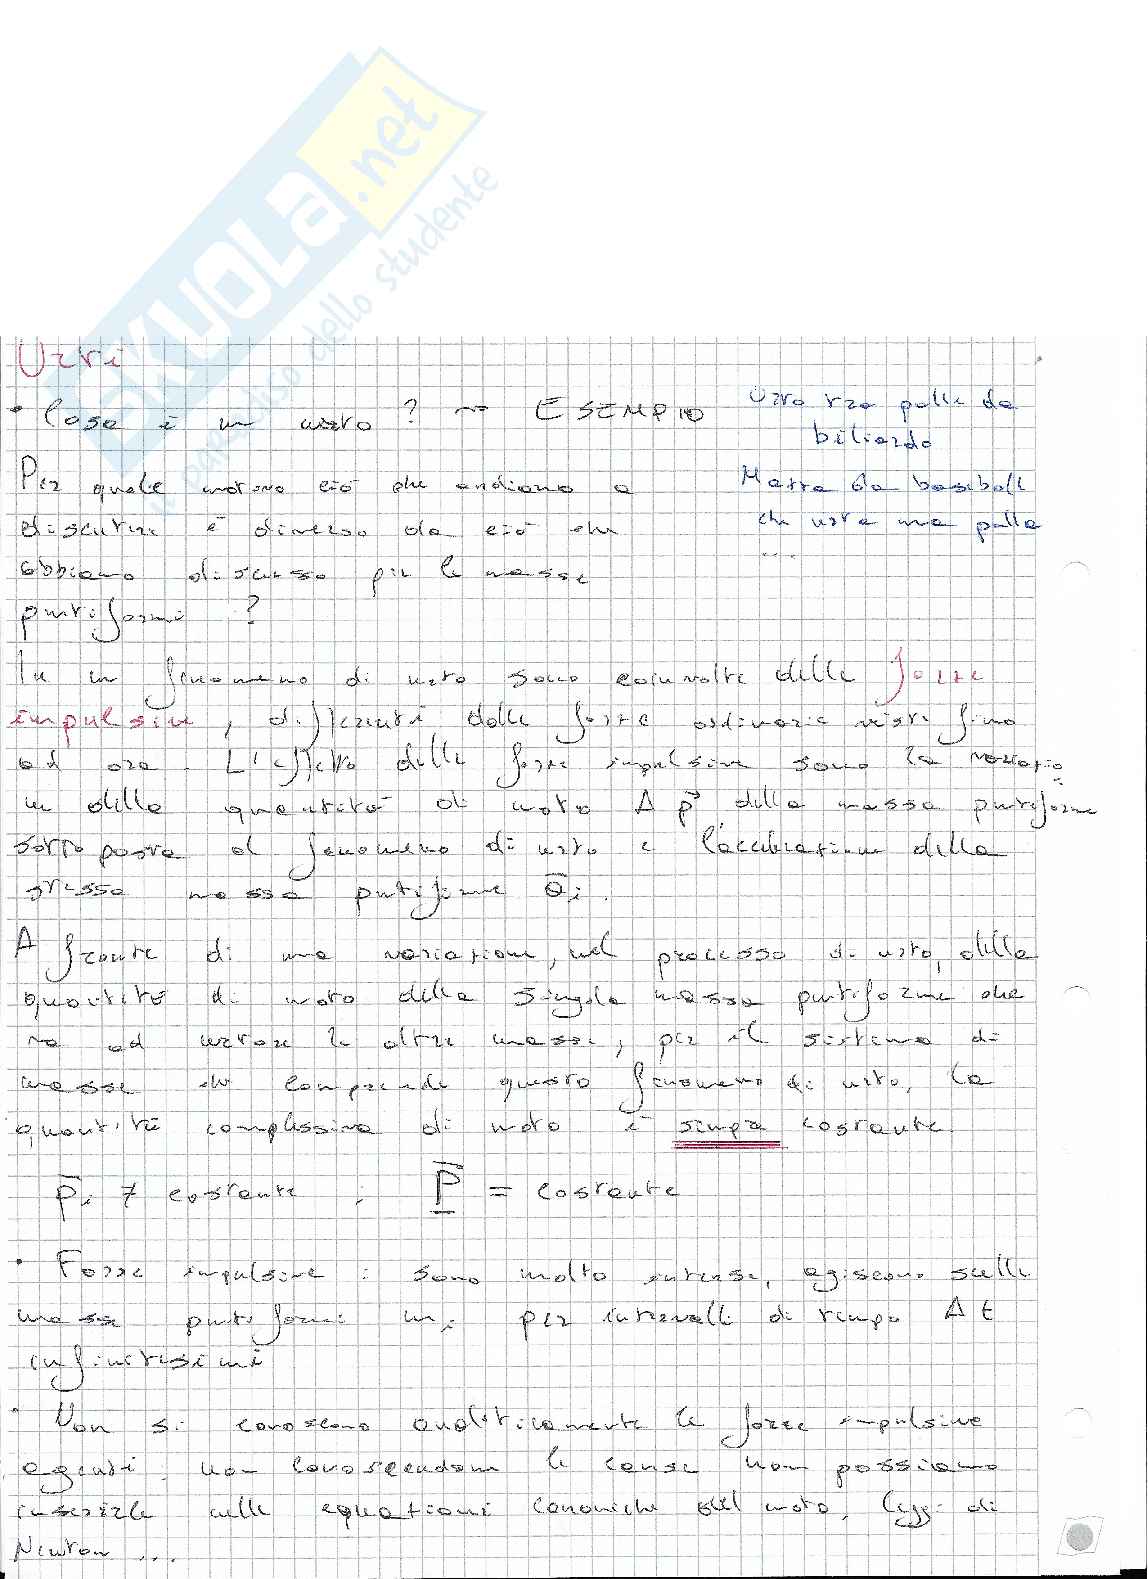 SKUOLA.net
il paradiso dello studente
Urti
• Cosa è un urto? ~> ESEMPIO
Urto tra palle da
biliardo
Mazza da baseball
che urta una palla
....
Per quale motivo ciò che andiamo a
discutere è diverso da ciò che
abbiamo discusso per le masse
puntiformi ?
In un fenomeno di urto sono coinvolte delle forze
impulsive, differenti dalle forze ordinarie viste fino
ad ora. L'effetto delle forze impulsive sono la variazio
ne della quantità di moto Δp⃗ della massa puntiforme
sottoposta al fenomeno di urto e l'accelerazione della
stessa massa puntiforme a̅i.
A fronte di una variazione, nel processo di urto, della
quantità di moto della singola massa puntiforme che
va ad urtare le altre masse, per il sistema di
masse che comprende questo fenomeno di urto, la
quantità complessiva di moto è sempre costante
p̅i ≠ costante ; P̅ = costante
• Forze impulsive : sono molto intense, agiscono sulle
masse puntiformi mi per intervalli di tempo Δt
infinitesimi
• Non si conoscono analiticamente le forze impulsive
agenti: non conoscendone le cause non possiamo
inserirle nelle equazioni canoniche del moto, leggi di
Newton ...